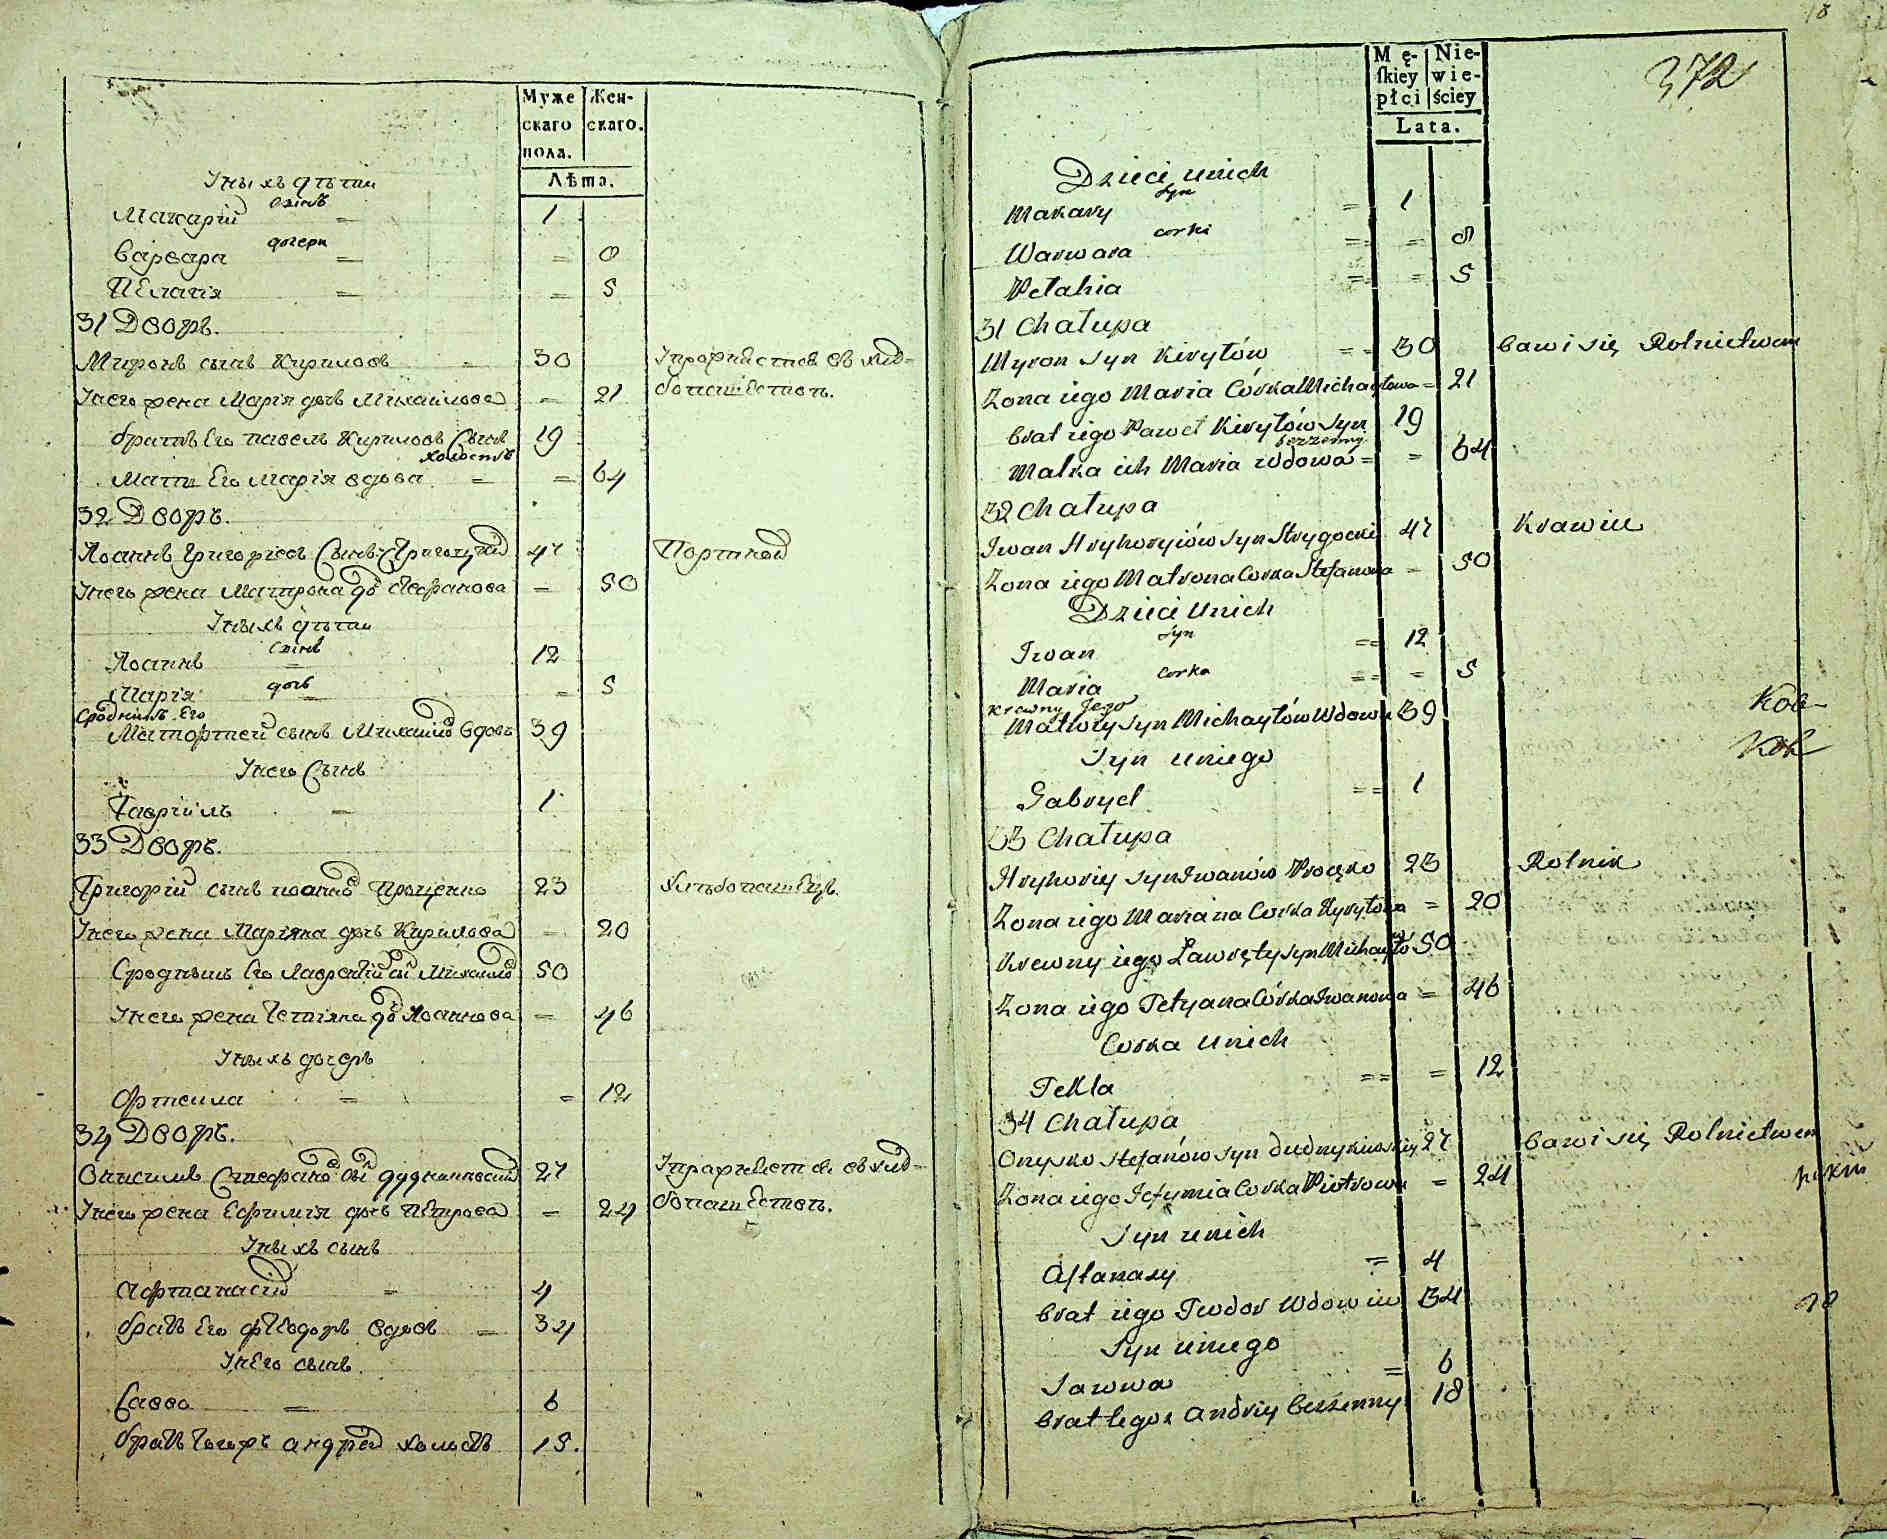 Муже Жен-
скаго скаго.
пола.
Лѣта.
У нихъ дѣти
сынъ
Макарій = 1
дочери
Варвара = = 8
Пелагія = = 5
31 Дворъ.
Миронъ сынъ Кириловъ = 30 Упражняется въ хлѣ-
У него жена Марія дочь Михайлова = 21 бопашествѣ.
братъ Его Павелъ Кириловъ Сынъ 19
холостъ
Мати Его Марія вдова = = 64
32 Дворъ.
Іоаннъ Григоріевъ Сынъ 47 Портной
У него жена Матрона до Стефанова = 50
У нихъ дѣти
сынъ
Іоаннъ = 12
дочь
Марія = = 5
Сродникъ Его
Матфтей сынъ Михайлов вдовъ 39
У него Сынъ
Гавріилъ = 1
33 Дворъ.
Григорій сынъ Іоаннов Проценко 23 Хлѣбопашецъ.
У него жена Маріяна дочь Кирилова = 20
Сродникъ Его Лаврентій сы Михайлов 50
У него жена Тетіяна до Іоаннова = 46
У нихъ дочеръ
Фртекла = = 12
34 Дворъ.
Онисимъ Стефанов сы Дудниковскій 27 Упражняется въ хлѣ-
У него жена Ефимія дочь Петрова = 24 бопашествѣ.
У нихъ сынъ
Афтанасій = 4
братъ Его Феодоръ вдовъ = 34
У Него сынъ
Савва = 6
братъ Андрей холостъ 18.
18
372
Mę- Nie-
ſkiey wie-
płci ściey
Lata.
Dzieci unich
syn
Makary = 1
corki
Warwara = = 8
Pelahia = = 5
31 Chałupa
Myron syn Kiryłów = = 30 bawi się Rolnictwem
Zona iego Maria Córka Michayłowa = 21
brat iego Paweł Kiryłów syn 19
bezżenny
Matka ich Maria wdowa = = 64
32 Chałupa
Iwan Hryhoryiów syn Strygocki 47 Krawiec
Zona iego Matrona Corka Stefanowa = 50
Dzieci unich
syn
Iwan = = 12
corka
Maria = = = 5
Krewny Jego
Matwiy syn Michayłów Wdowiec 39
Syn uniego
Gabryel = = 1
33 Chałupa
Hryhoriy syn Iwanów Procęko 23 Rolnik
Zona iego Mariana Corka Kyryłowa = 20
Krewny iego Ławręty syn Michayłów 50
Zona iego Tetyana Córka Iwanowa = 46
Corka unich
Tekla = = = 12
34 Chałupa
Onysko Stefanów syn Dudnykiwskiy 27 bawi się Rolnictwem
Zona iego Jefymia Corka Piotrowa = 24
Syn unich
Aftanasy = 4
brat iego Teodor Wdowiec 34
Syn uniego
Sawwa = 6
brat tegoż Andriy bezżenny 18